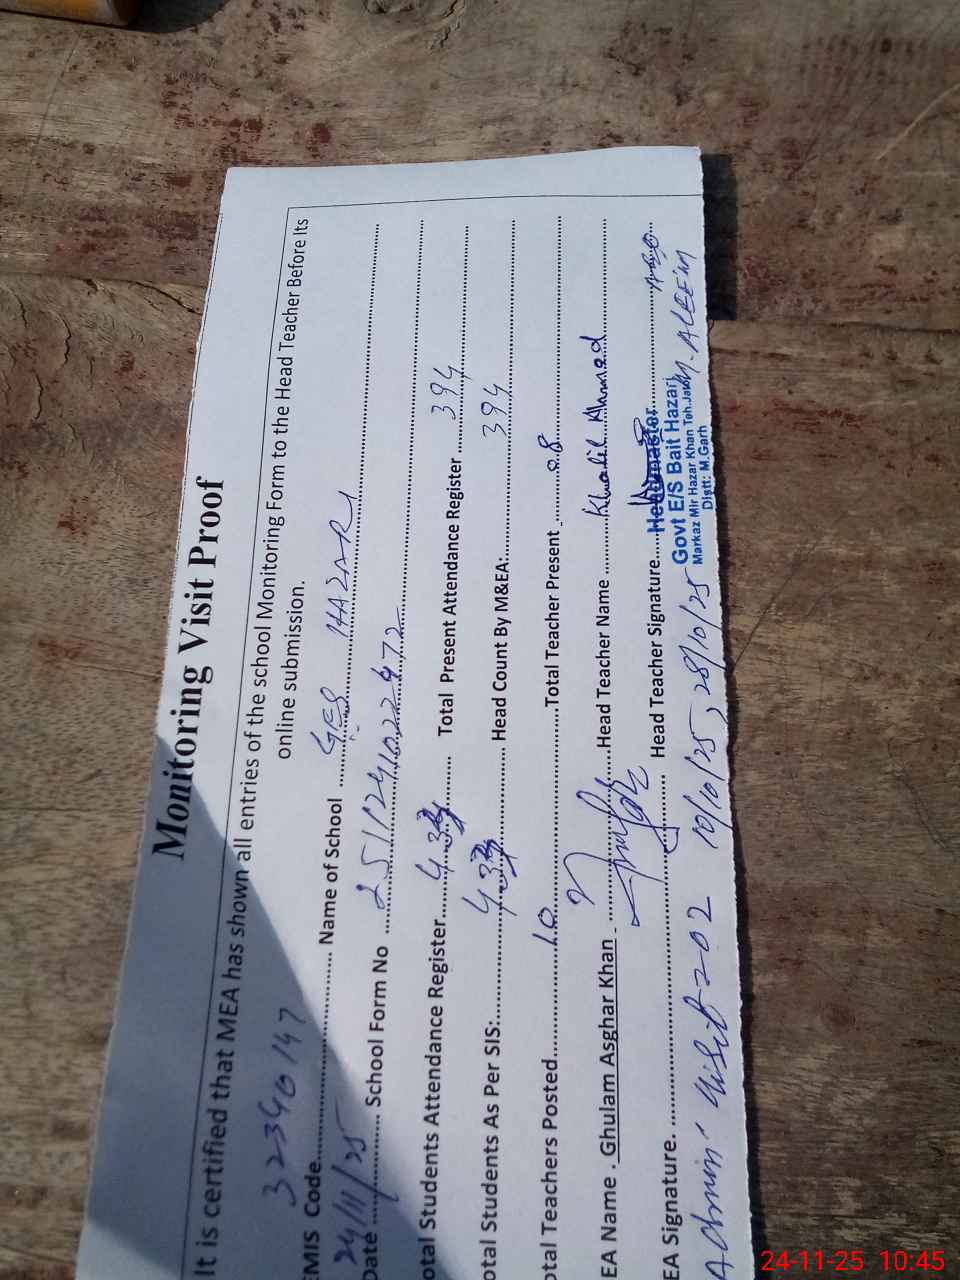 Monitoring Visit Proof
It is certified that MEA has shown all entries of the school Monitoring Form to the Head Teacher Before Its
online submission.
EMIS Code 32340147 Name of School GES HAZARI
Date 24/11/25 School Form No 2511241022472
otal Students Attendance Register 434 Total Present Attendance Register 394
otal Students As Per SIS: 434 Head Count By M&EA: 394
otal Teachers Posted 10 Total Teacher Present 08
EA Name . Ghulam Asghar Khan Head Teacher Name Khalil Ahmed
EA Signature. Head Teacher Signature
Headmaster
Govt E/S Bait Hazari
Markaz Mir Hazar Khan Teh.Jatoi
Distt: M.Garh
M. ALEEM
Admin: Visit = 02 10/10/25, 28/10/25
24-11-25 10:45